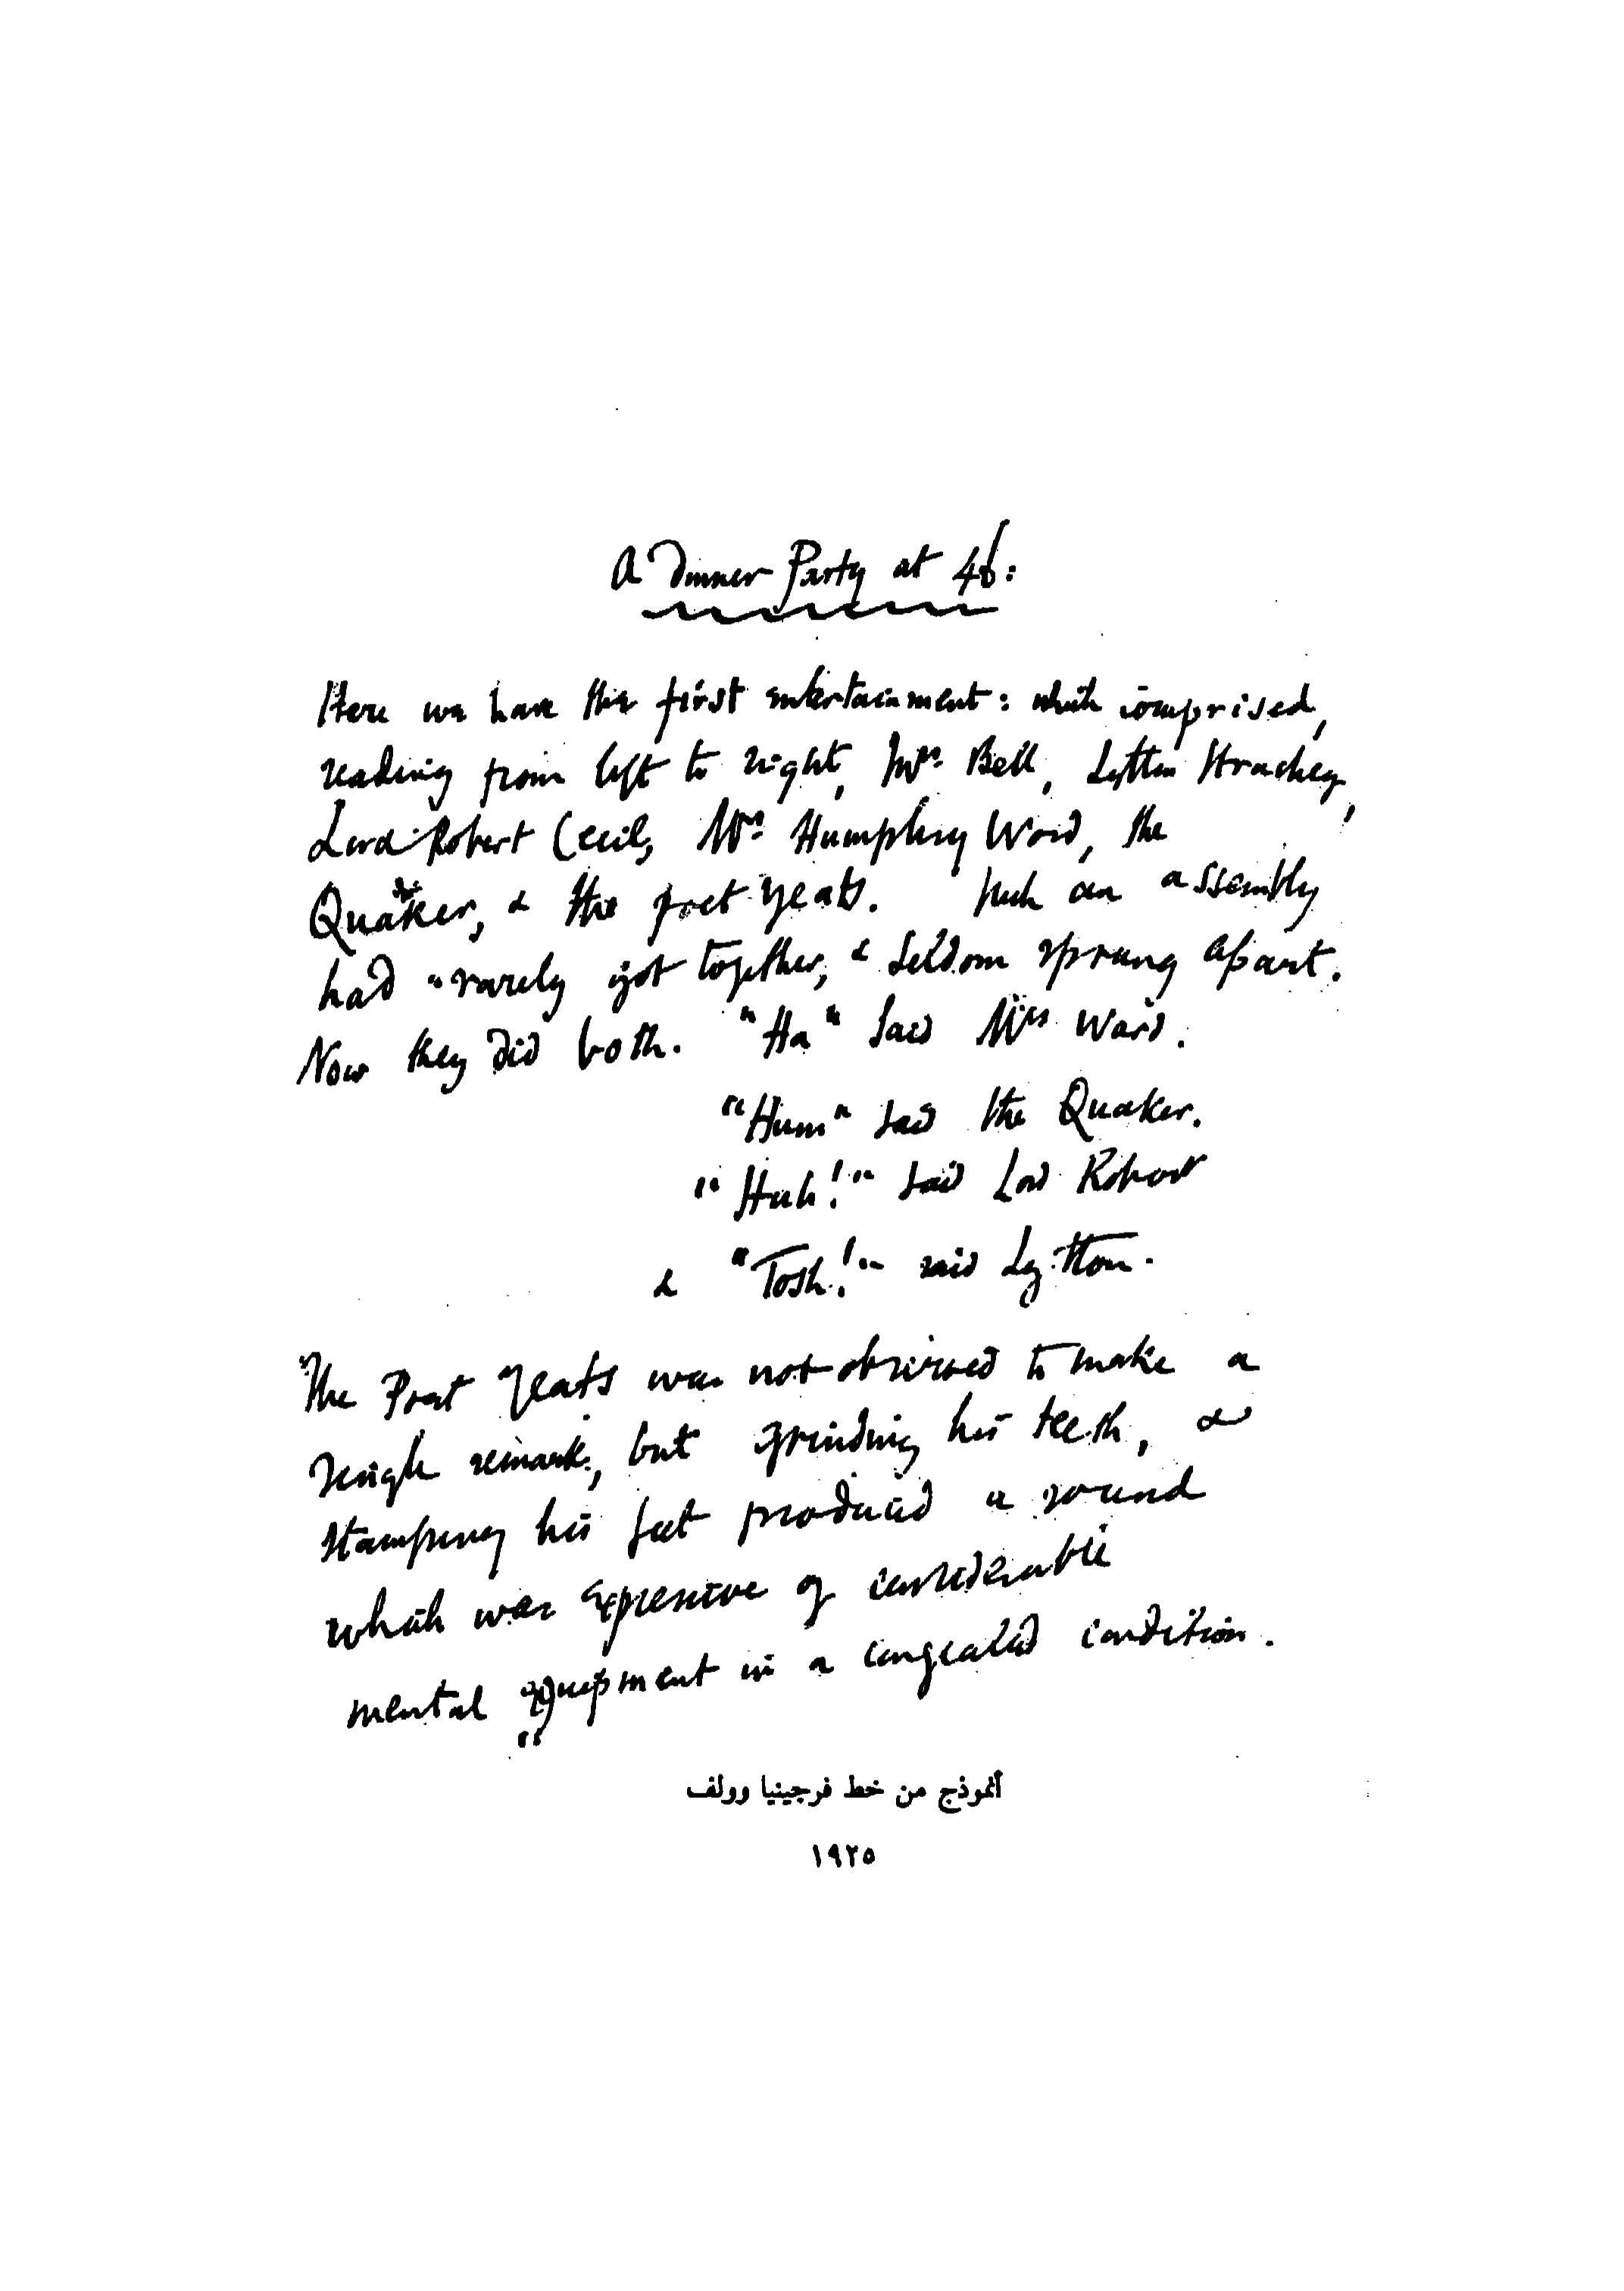 A Dinner Party at 46:
Here we have the first entertainment: which comprised,
reading from left to right, Mrs. Bell, Lytton Strachey,
Lord Robert Cecil, Mrs. Humphry Ward, the
Quaker, & the poet Yeats. Such an assembly
had rarely got together, & seldom sprung apart.
Now they did both. "Ha" said Mrs Ward.
"Hum" said the Quaker.
"Huh!" said Lord Robert
& "Tosh!" said Lytton.
The Poet Yeats was not observed to make a
single remark, but grinding his teeth, &
stamping his feet produced a sound
which was expressive of considerable
mental equipment in a congealed condition.
أنموذج من خط فرجينيا وولف
١٩٢٥